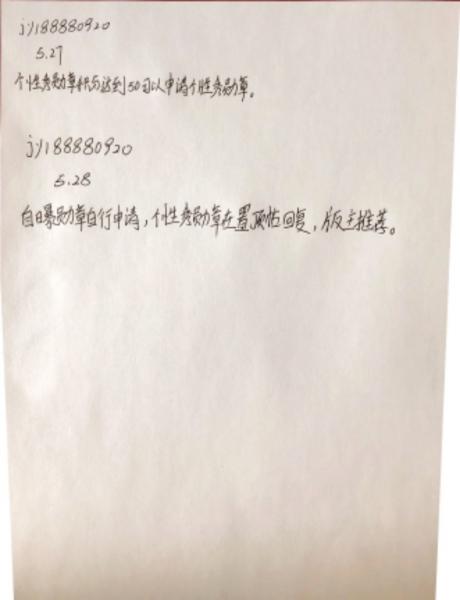 jy188880920
5.27
个性秀勋章积分达到50可以申请个性秀勋章。
jy188880920
5.28
自曝勋章自行申请，个性秀勋章在置顶帖回复，版主推荐。